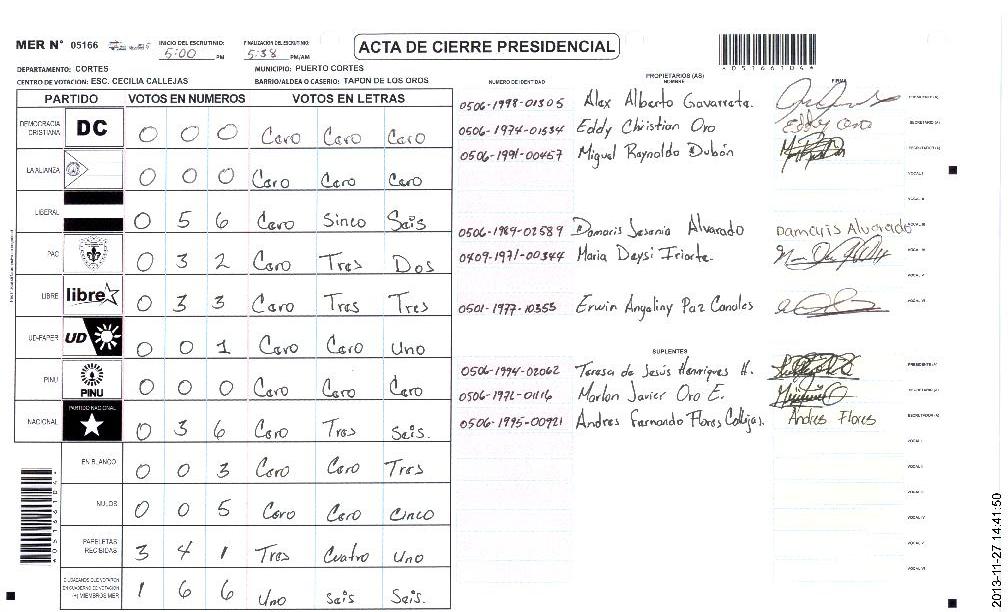 MER N° 05166 INICIO DEL ESCRUTINIO: 5:00 PM FINALIZACION DEL ESCRUTINIO: 5:38 PM/AM ACTA DE CIERRE PRESIDENCIAL
DEPARTAMENTO: CORTES MUNICIPIO: PUERTO CORTES
CENTRO DE VOTACION: ESC. CECILIA CALLEJAS BARRIO/ALDEA O CASERIO: TAPON DE LOS OROS
A05166104A
PARTIDO VOTOS EN NUMEROS VOTOS EN LETRAS
DEMOCRACIA CRISTIANA DC 0 0 0 Cero Cero Cero
LA ALIANZA 0 0 0 Cero Cero Cero
LIBERAL 0 5 6 Cero Sinco Seis
PAC 0 3 2 Cero Tres Dos
LIBRE libre 0 3 3 Cero Tres Tres
UD-FAPER UD 0 0 1 Cero Cero Uno
PINU PINU 0 0 0 Cero Cero Cero
NACIONAL PARTIDO NACIONAL 0 3 6 Cero Tres Seis.
EN BLANCO 0 0 3 Cero Cero Tres
NULOS 0 0 5 Cero Cero Cinco
PAPELETAS RECIBIDAS 3 4 1 Tres Cuatro Uno
CIUDADANOS QUE VOTARON EN CUADERNO DE VOTACION (+) MIEMBROS MER 1 6 6 Uno seis Seis.
NUMERO DE IDENTIDAD PROPIETARIOS (AS) NOMBRE FIRMA
0506-1998-01305 Alex Alberto Gavarrete. PRESIDENTE (A)
0506-1974-01534 Eddy Christian Oro Eddy Oro SECRETARIO (A)
0506-1991-00457 Miguel Reynoldo Dubón ESCRUTADOR (A)
VOCAL I
VOCAL II
0506-1989-02589 Damaris Jesenia Alvarado Damaris Alvarado VOCAL III
0409-1971-00344 Maria Deysi Iriarte. VOCAL IV
VOCAL V
0501-1977-10355 Erwin Angaliny Paz Canales VOCAL VI
SUPLENTES
0506-1994-02062 Teresa de Jesús Henriques H. PRESIDENTE (A)
0506-1971-01116 Marlon Javier Oro E. SECRETARIO (A)
0506-1995-00921 Andres Fernando Flores Callejas. Andres Flores ESCRUTADOR (A)
VOCAL I
VOCAL II
VOCAL III
VOCAL IV
VOCAL V
VOCAL VI
2013-11-27 14:41:50